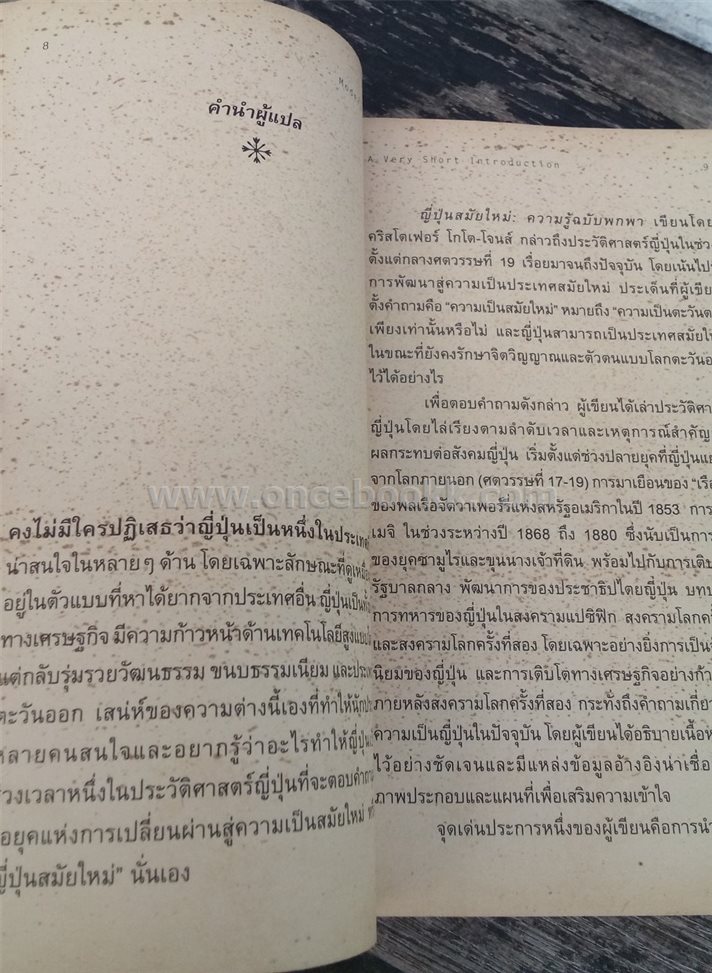 8
คำนำผู้แปล
คงไม่มีใครปฏิเสธว่าญี่ปุ่นเป็นหนึ่งในประเทศ
น่าสนใจในหลายๆ ด้าน โดยเฉพาะลักษณะที่ดู
อยู่ในตัวแบบที่หาได้ยากจากประเทศอื่น ญี่ปุ่นเป็น
ทางเศรษฐกิจ มีความก้าวหน้าด้านเทคโนโลยีสูง
แต่กลับรุ่มรวยวัฒนธรรม ขนบธรรมเนียม และ
ตะวันออก เสน่ห์ของความต่างนี้เองที่ทำให้
หลายคนสนใจและอยากรู้ว่าอะไรทำให้ญี่ปุ่น
ช่วงเวลาหนึ่งในประวัติศาสตร์ญี่ปุ่นที่จะตอบคำถาม
อยุคแห่งการเปลี่ยนผ่านสู่ความเป็นสมัยใหม่
ญี่ปุ่นสมัยใหม่” นั่นเอง
A Very Short Introduction
9
ญี่ปุ่นสมัยใหม่: ความรู้ฉบับพกพา เขียนโดย
คริสโตเฟอร์ โกโต-โจนส์ กล่าวถึงประวัติศาสตร์ญี่ปุ่นในช่วง
ตั้งแต่กลางศตวรรษที่ 19 เรื่อยมาจนถึงปัจจุบัน โดยเน้นไป
การพัฒนาสู่ความเป็นประเทศสมัยใหม่ ประเด็นที่ผู้เขีย
ตั้งคำถามคือ “ความเป็นสมัยใหม่” หมายถึง “ความเป็นตะวันต
เพียงเท่านั้นหรือไม่ และญี่ปุ่นสามารถเป็นประเทศสมัยให
ในขณะที่ยังคงรักษาจิตวิญญาณและตัวตนแบบโลกตะวันอ
ไว้ได้อย่างไร
เพื่อตอบคำถามดังกล่าว ผู้เขียนได้เล่าประวัติศา
ญี่ปุ่นโดยไล่เรียงตามลำดับเวลาและเหตุการณ์สำคัญ
ผลกระทบต่อสังคมญี่ปุ่น เริ่มตั้งแต่ช่วงปลายยุคที่ญี่ปุ่นแย
จากโลกภายนอก (ศตวรรษที่ 17-19) การมาเยือนของ “เรือ
ของพลเรือจัตวาเพอร์รีแห่งสหรัฐอเมริกาในปี 1853 การ
เมจิ ในช่วงระหว่างปี 1868 ถึง 1880 ซึ่งนับเป็นการ
ของยุคซามูไรและขุนนางเจ้าที่ดิน พร้อมไปกับการเติบ
รัฐบาลกลาง พัฒนาการของประชาธิปไตยญี่ปุ่น บทบ
การทหารของญี่ปุ่นในสงครามแปซิฟิก สงครามโลกครั้
และสงครามโลกครั้งที่สอง โดยเฉพาะอย่างยิ่งการเป็นจั
นิยมของญี่ปุ่น และการเติบโตทางเศรษฐกิจอย่างก้า
ภายหลังสงครามโลกครั้งที่สอง กระทั่งถึงคำถามเกี่ย
ความเป็นญี่ปุ่นในปัจจุบัน โดยผู้เขียนได้อธิบายเนื้อห
ไว้อย่างชัดเจนและมีแหล่งข้อมูลอ้างอิงน่าเชื่อ
ภาพประกอบและแผนที่เพื่อเสริมความเข้าใจ
จุดเด่นประการหนึ่งของผู้เขียนคือการนำ
www.oncebookk.com